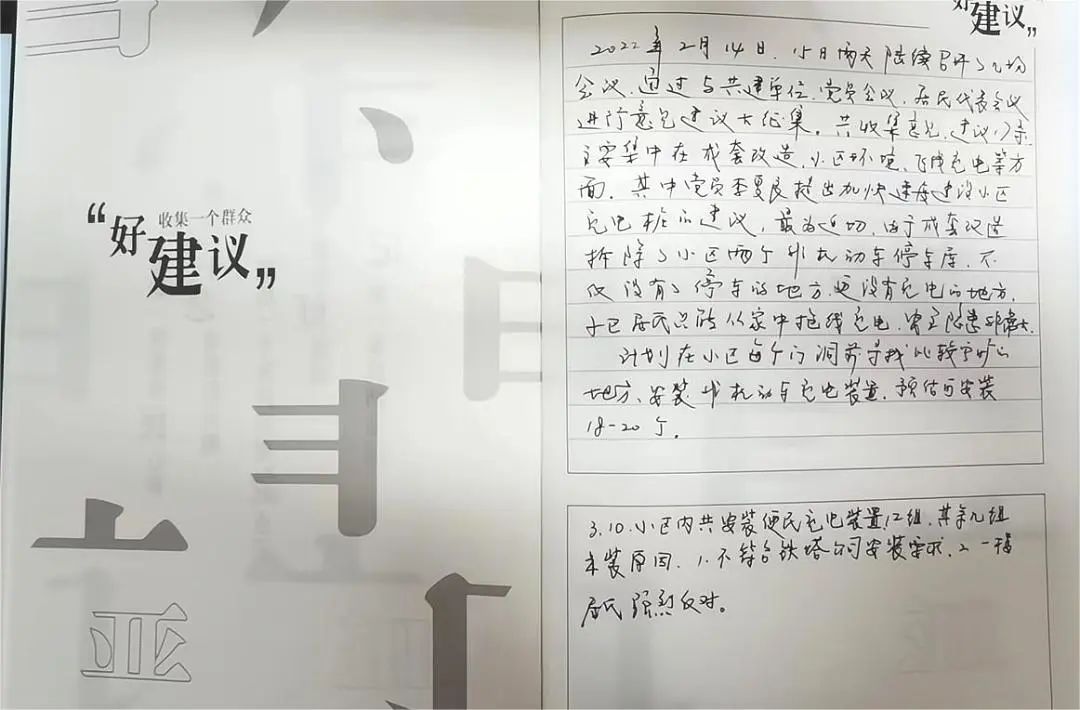 收集一个群众
“好建议”
亚
好建议”
2022年2月14日、15日两天陆续召开了几场
会议,通过与共建单位、党员会议、居民代表会议
进行意见建议大征集。共收集意见、建议17条
主要集中在成套改造、小区环境、飞线充电等方
面。其中党员李夏良提出加快速度建设小区
充电桩的建议,最为迫切,由于成套改造
拆除了小区两个非机动车停车库,不
仅没有了停车的地方,更没有充电的地方,
于是居民只能从家中拖线充电,安全隐患非常大。
计划在小区每个门洞前寻找比较空旷的
地方,安装非机动车充电装置,预估可安装
18-20个。
3.10.小区内共安装便民充电装置12组,其余几组
未装原因,1.不符合铁塔公司安装要求,2.一楼
居民强烈反对。